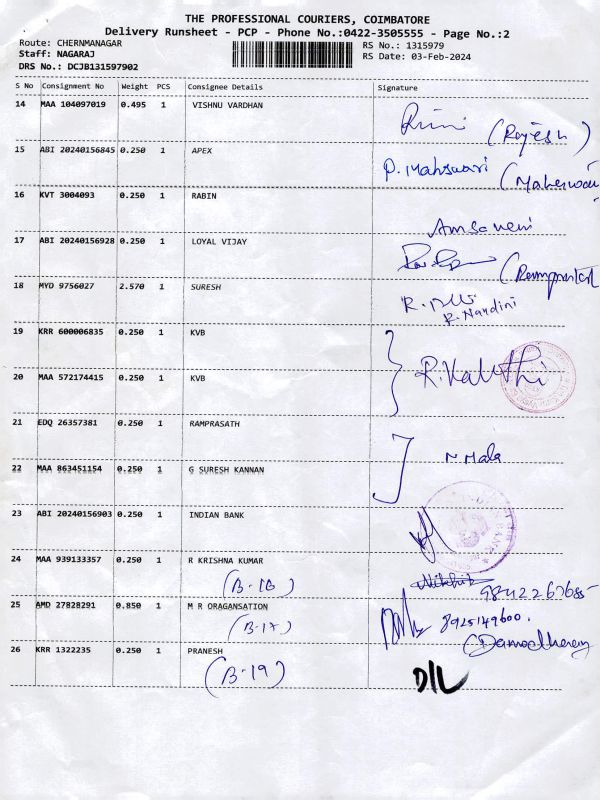 THE PROFESSIONAL COURIERS, COIMBATORE
Delivery Runsheet - PCP - Phone No.:0422-3505555 - Page No.:2
Route: CHERNMANAGAR
Staff: NAGARAJ
DRS No.: DCJB131597902
RS No.: 1315979
RS Date: 03-Feb-2024
S No Consignment No Weight PCS Consignee Details Signature
14 MAA 104097019 0.495 1 VISHNU VARDHAN
(Rajesh)
15 ABI 20240156845 0.250 1 APEX P. Mahswari
16 KVT 3004093 0.250 1 RABIN Amsaveni
17 ABI 20240156928 0.250 1 LOYAL VIJAY
18 MYD 9756027 2.570 1 SURESH
R. Nandini
19 KRR 600006835 0.250 1 KVB
20 MAA 572174415 0.250 1 KVB
21 EDQ 26357381 0.250 1 RAMPRASATH
22 MAA 863451154 0.250 1 G SURESH KANNAN N Mala
23 ABI 20240156903 0.250 1 INDIAN BANK
24 MAA 939133357 0.250 1 R KRISHNA KUMAR
(B-1B)
25 AMD 27828291 0.850 1 M R ORAGANSATION 8925149600.
(B-17)
26 KRR 1322235 0.250 1 PRANESH
(B-19) D/L